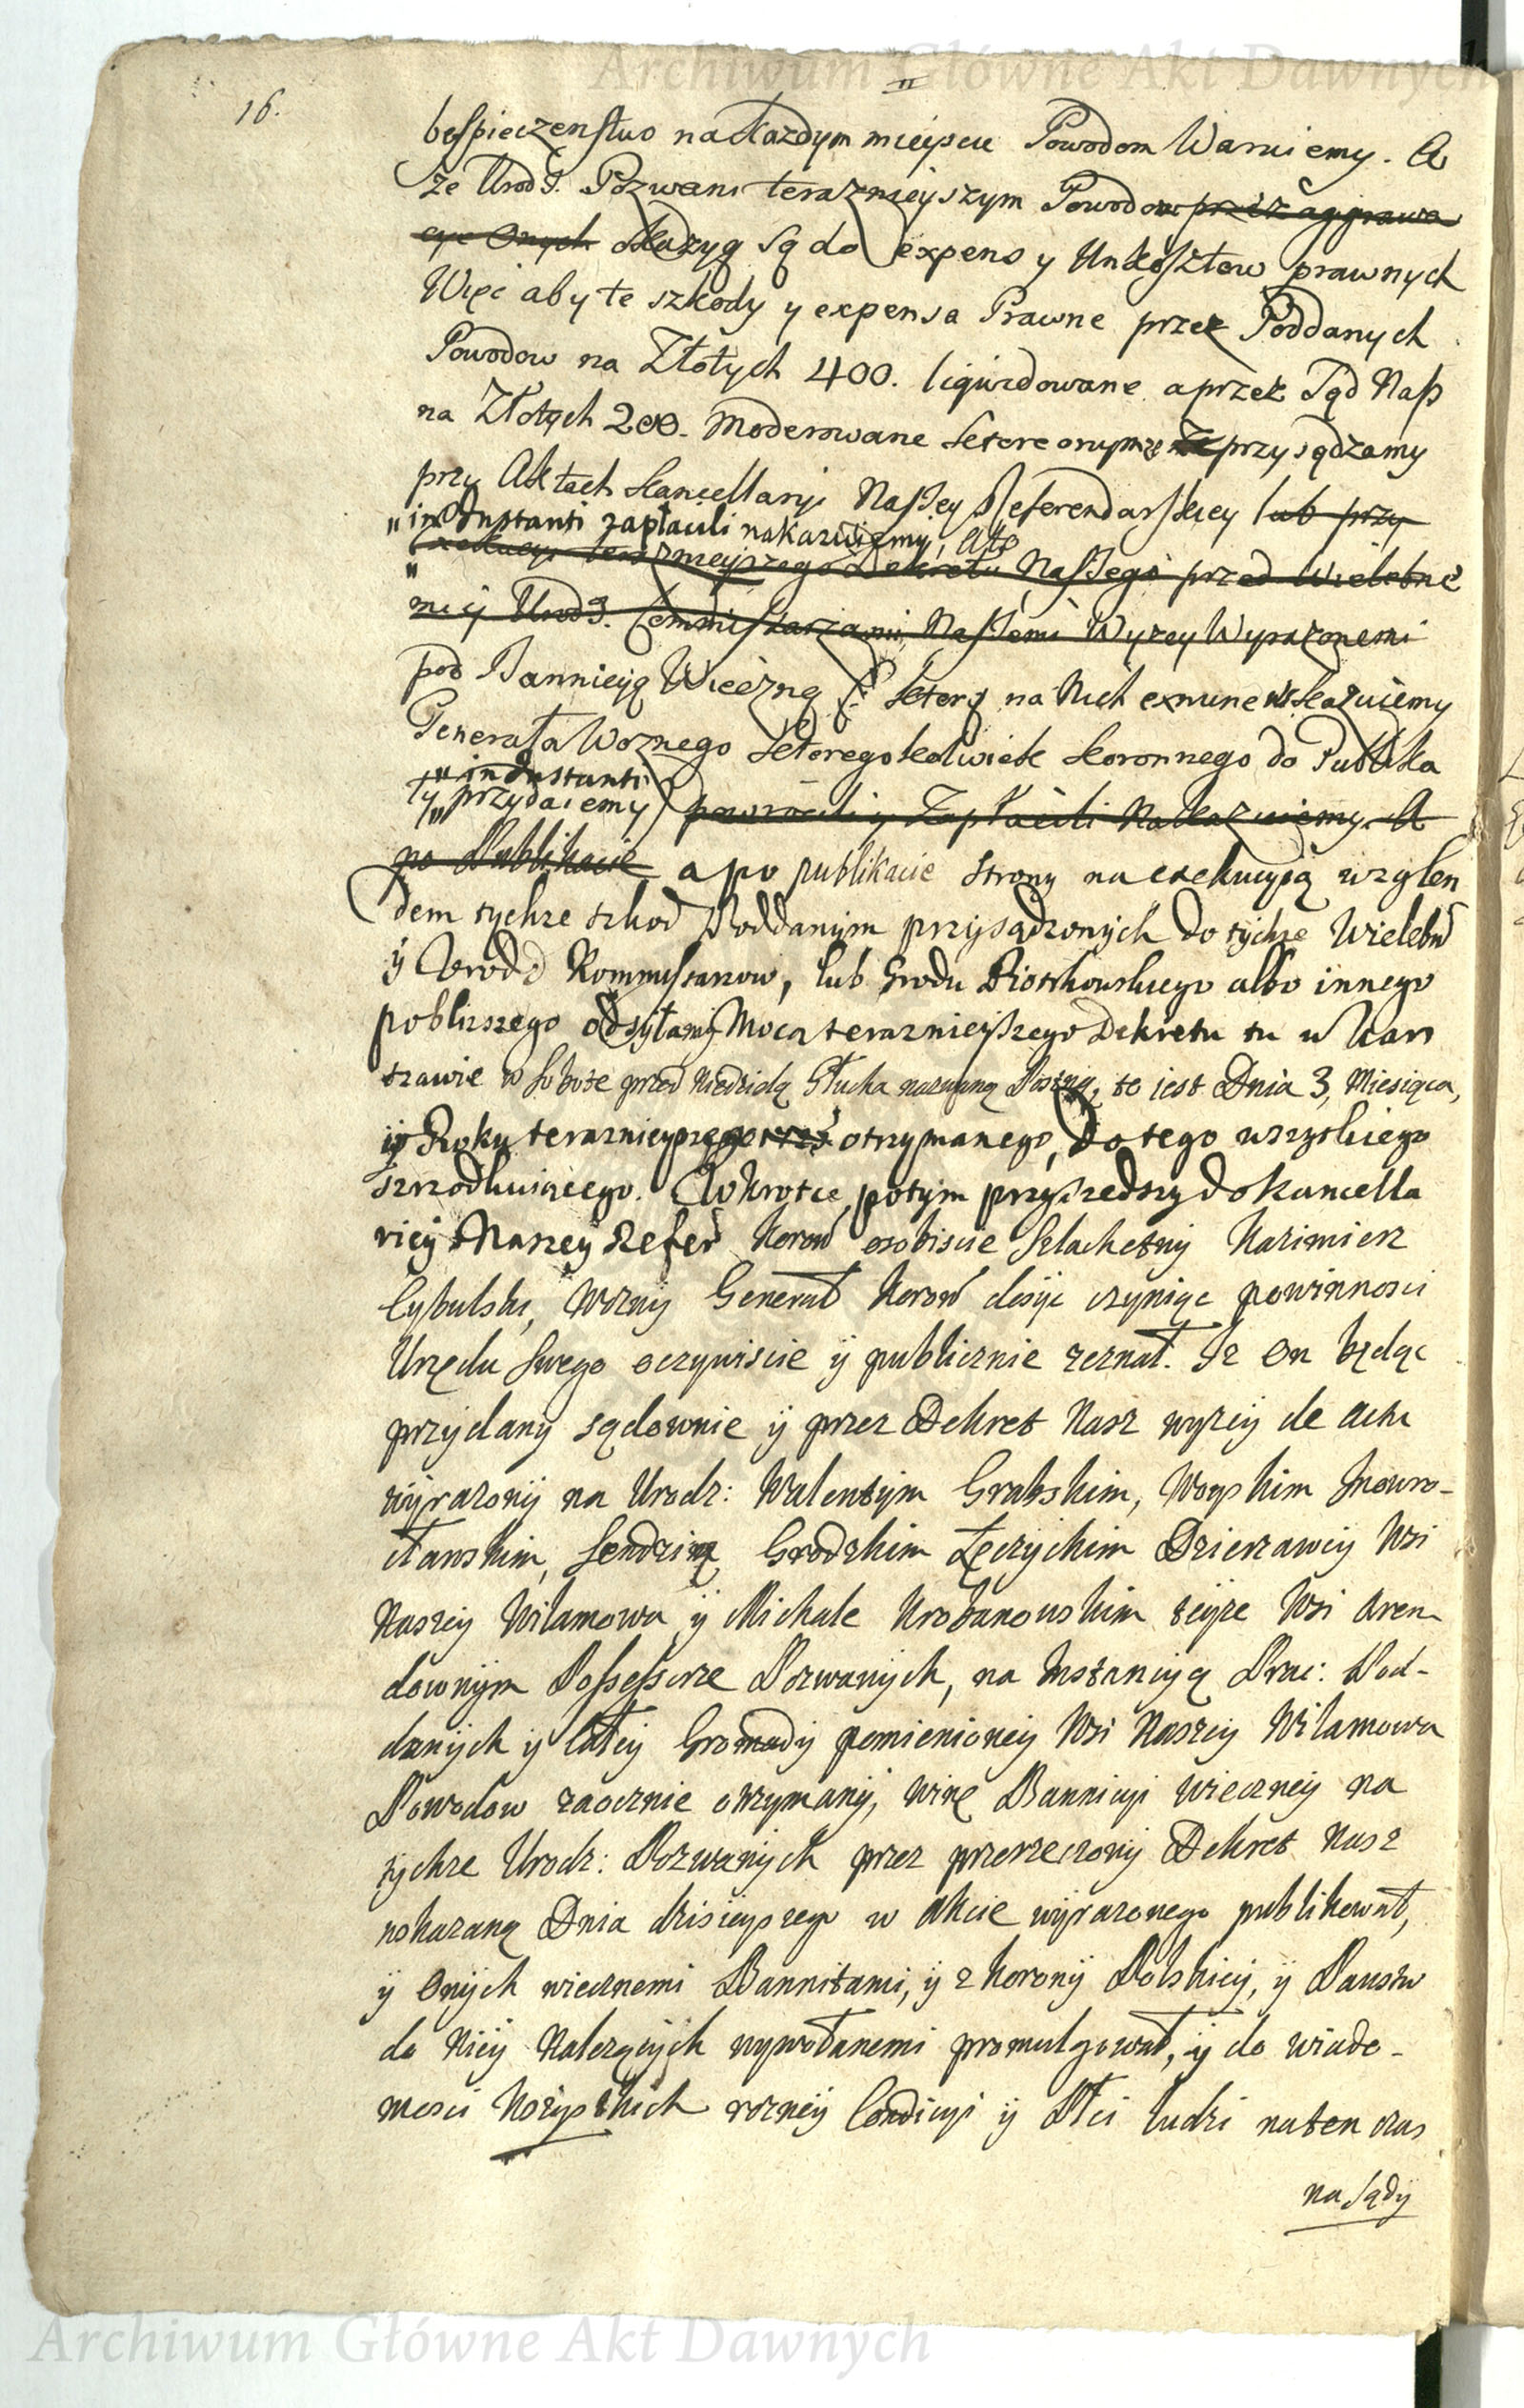 Archiwum Główne Akt Dawnych
16.
bespieczeństwo na każdym mieyscu Powodom Waruiemy. A
że Urodź. Pozwani teraznieyszym Powodom przez aggrawa
cye Onych okazyą są do expens y Unkosztow prawnych
Więc aby te szkody y expensa Prawne przez Poddanych
Powodow na Złotych 400. liquidowane a przez Sąd Nasz
na Złotych 200. Moderowane ktore onymże przysądzamy
przy Aktach Kancellaryi Naszey Referendarskiey lub przy
"in instanti zapłacili nakazuiemy, Ato
exekucyi teraznieyszego Dekretu Naszego przed Wielebne
mi y Urodź. Commissarzami Naszemi Wyzey Wyrazonemi
pod Bannicyą Wieczną ktorą na Nich exnunc wskazuiemy
Generała Woznego ktoregokolwiek Koronnego do Publika
"in instanti
ty przydaiemy powrocili y Zapłacili Nakazuiemy. A
po Publikacie a po publikacie strony na exekucyią wzglen
dem tychze szkod Poddanym przysądzonych do tychze Wielebń
ÿ Urodź Kommissarzow, lub Grodu Piotrkowskiego albo innego
poblizszego odsyłamy Mocą teraznieyszego Dekretu tu w War
szawie w Sobotę przed Niedzielą Głucha nazwaną Postną, to jest Dnia 3, Miesiąca,
ÿ Roku teraznieyszego otrzymanego, Do tego wszystkiego
szrodkuiącego. Wkrotce potym przyszedszy do Kancella
ryiey Naszey Refeń Koroń osobiscie Szlachetny Kazimierz
Cybulski, Wozny Generał Koroń dosyc czyniąc powinnosci
Urzędu Swego oczywiscie ÿ publicznie zeznał. Iz On będąc
przydany sądownie ÿ przez Dekret Nasz wyzey de actu
wyrazony na Urodz: Walentym Grabskim, Woyskim Inowro-
cławskim, Sendzią Grodzkim Łęczyckim Dzierzawcy Wsi
Naszey Wilamowa ÿ Michale Urbanowskim teyze Wsi Aren
downym Possessorze Pozwanych, na Instancyą Prac: Pod-
danych y całey Gromady pomienioney Wsi Naszey Wilamowa
Powodow zaocznie otrzymany, winę Bannicyi wieczney na
tychze Urodz: Pozwanych przez przerzeczony Dekret Nasz
wskazaną Dnia dzisieyszego w Akcie wyrazonego publikował,
ÿ Onych wiecznemi Bannitami, ÿ z Korony Polskiey, ÿ Panstw
do Niey Nalezących wywołanemi promulgował, ÿ do wiado-
mosci Wszystkich rozney Condicyi ÿ Płci ludzi naten czas
na Sądy
Archiwum Główne Akt Dawnych